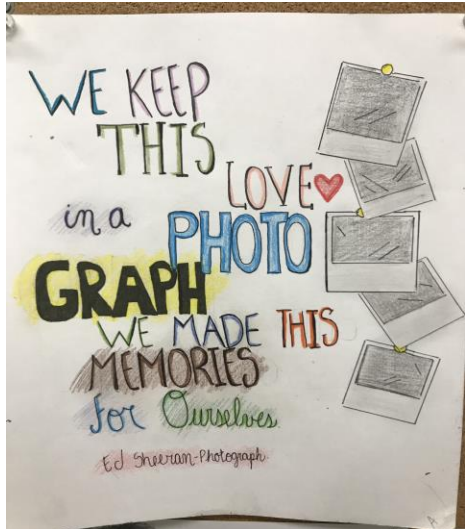 WE KEEP
THIS
LOVE
in a
PHOTO
GRAPH
WE MADE THIS
MEMORIES
for Ourselves
Ed Sheeran-Photograph